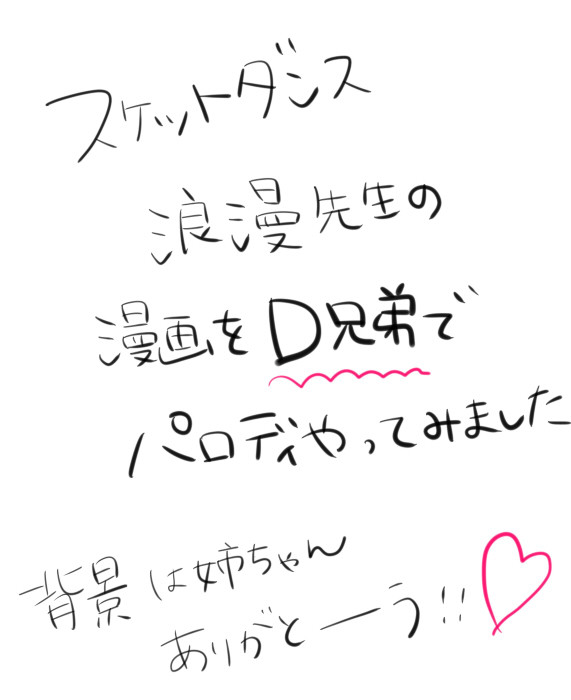 スケットダンス
浪漫先生の
漫画をD兄弟で
パロディやってみました
背景は姉ちゃん
ありがとーう!!